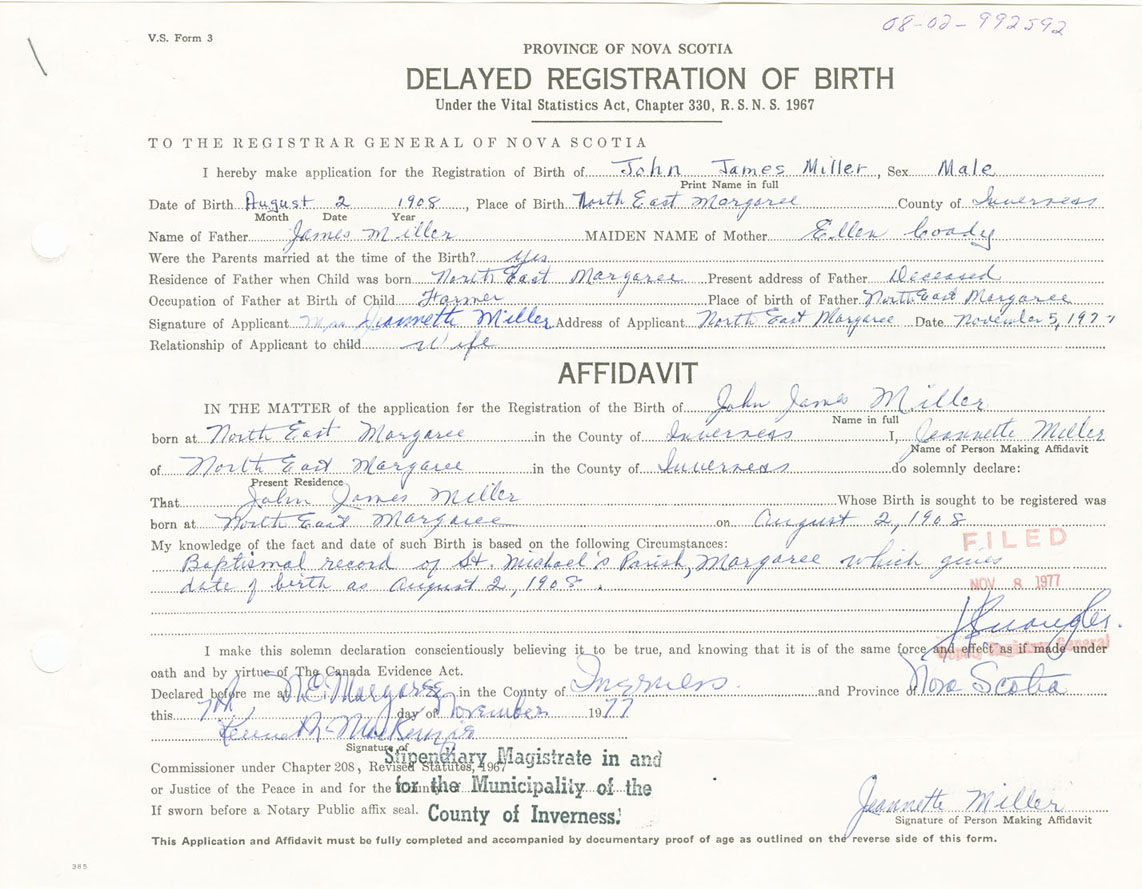 08-02-992592
V.S. Form 3
PROVINCE OF NOVA SCOTIA
DELAYED REGISTRATION OF BIRTH
Under the Vital Statistics Act, Chapter 330, R.S.N.S. 1967
TO THE REGISTRAR GENERAL OF NOVA SCOTIA
I hereby make application for the Registration of Birth of John James Miller, Sex Male
Print Name in full
Date of Birth August 2 1908, Place of Birth North East Margaree County of Inverness
Month Date Year
Name of Father James Miller MAIDEN NAME of Mother Ellen Coady
Were the Parents married at the time of the Birth? yes
Residence of Father when Child was born North East Margaree Present address of Father Deceased
Occupation of Father at Birth of Child Farmer Place of birth of Father North East Margaree
Signature of Applicant Mrs Jeannette Miller Address of Applicant North East Margaree Date November 5, 1977
Relationship of Applicant to child Wife
AFFIDAVIT
IN THE MATTER of the application for the Registration of the Birth of John James Miller
Name in full
born at North East Margaree in the County of Inverness I, Jeannette Miller
Name of Person Making Affidavit
of North East Margaree in the County of Inverness do solemnly declare:
Present Residence
That John James Miller Whose Birth is sought to be registered was
born at North East Margaree on August 2, 1908
My knowledge of the fact and date of such Birth is based on the following Circumstances:
FILED
Baptismal record of St. Michael's Parish, Margaree which gives
date of birth as August 2, 1908.
NOV 8 1977
I make this solemn declaration conscientiously believing it to be true, and knowing that it is of the same force and effect as if made under
Deputy Registrar General
oath and by virtue of The Canada Evidence Act.
Declared before me at N.E. Margaree in the County of Inverness. and Province of Nova Scotia
this 7th day of November 1977
Kenneth MacKenzie
Signature of
Stipendiary Magistrate in and
Commissioner under Chapter 208, Revised Statutes, 1967
or Justice of the Peace in and for the
for the Municipality of the
If sworn before a Notary Public affix seal.
County of Inverness.
Jeannette Miller
Signature of Person Making Affidavit
This Application and Affidavit must be fully completed and accompanied by documentary proof of age as outlined on the reverse side of this form.
385